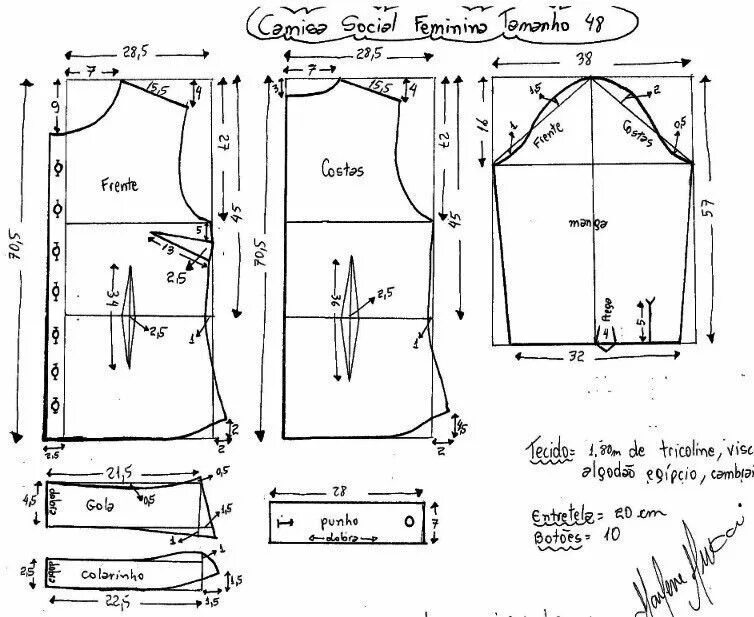 Camisa Social Feminina Tamanho 48
28,5
7
15,5
4
9
27
45
70,5
Frente
5
13
2,5
34
2,5
1
2
2
2,5
28,5
7
3
15,5
4
27
45
70,5
Costas
36
2,5
1
4,5
2
38
1,5
2
16
1
Frente
Costas
0,5
57
manga
Prega
4
5
32
21,5
0,5
4,5
dobra
Gola
0,5
1,5
1
2,5
dobra
colarinho
1
1,5
22,5
1,5
28
punho
dobra
7
Tecido= 1.80m de tricoline, visc
algodão egípcio, cambrai
Entretela= 20 cm
Botões= 10